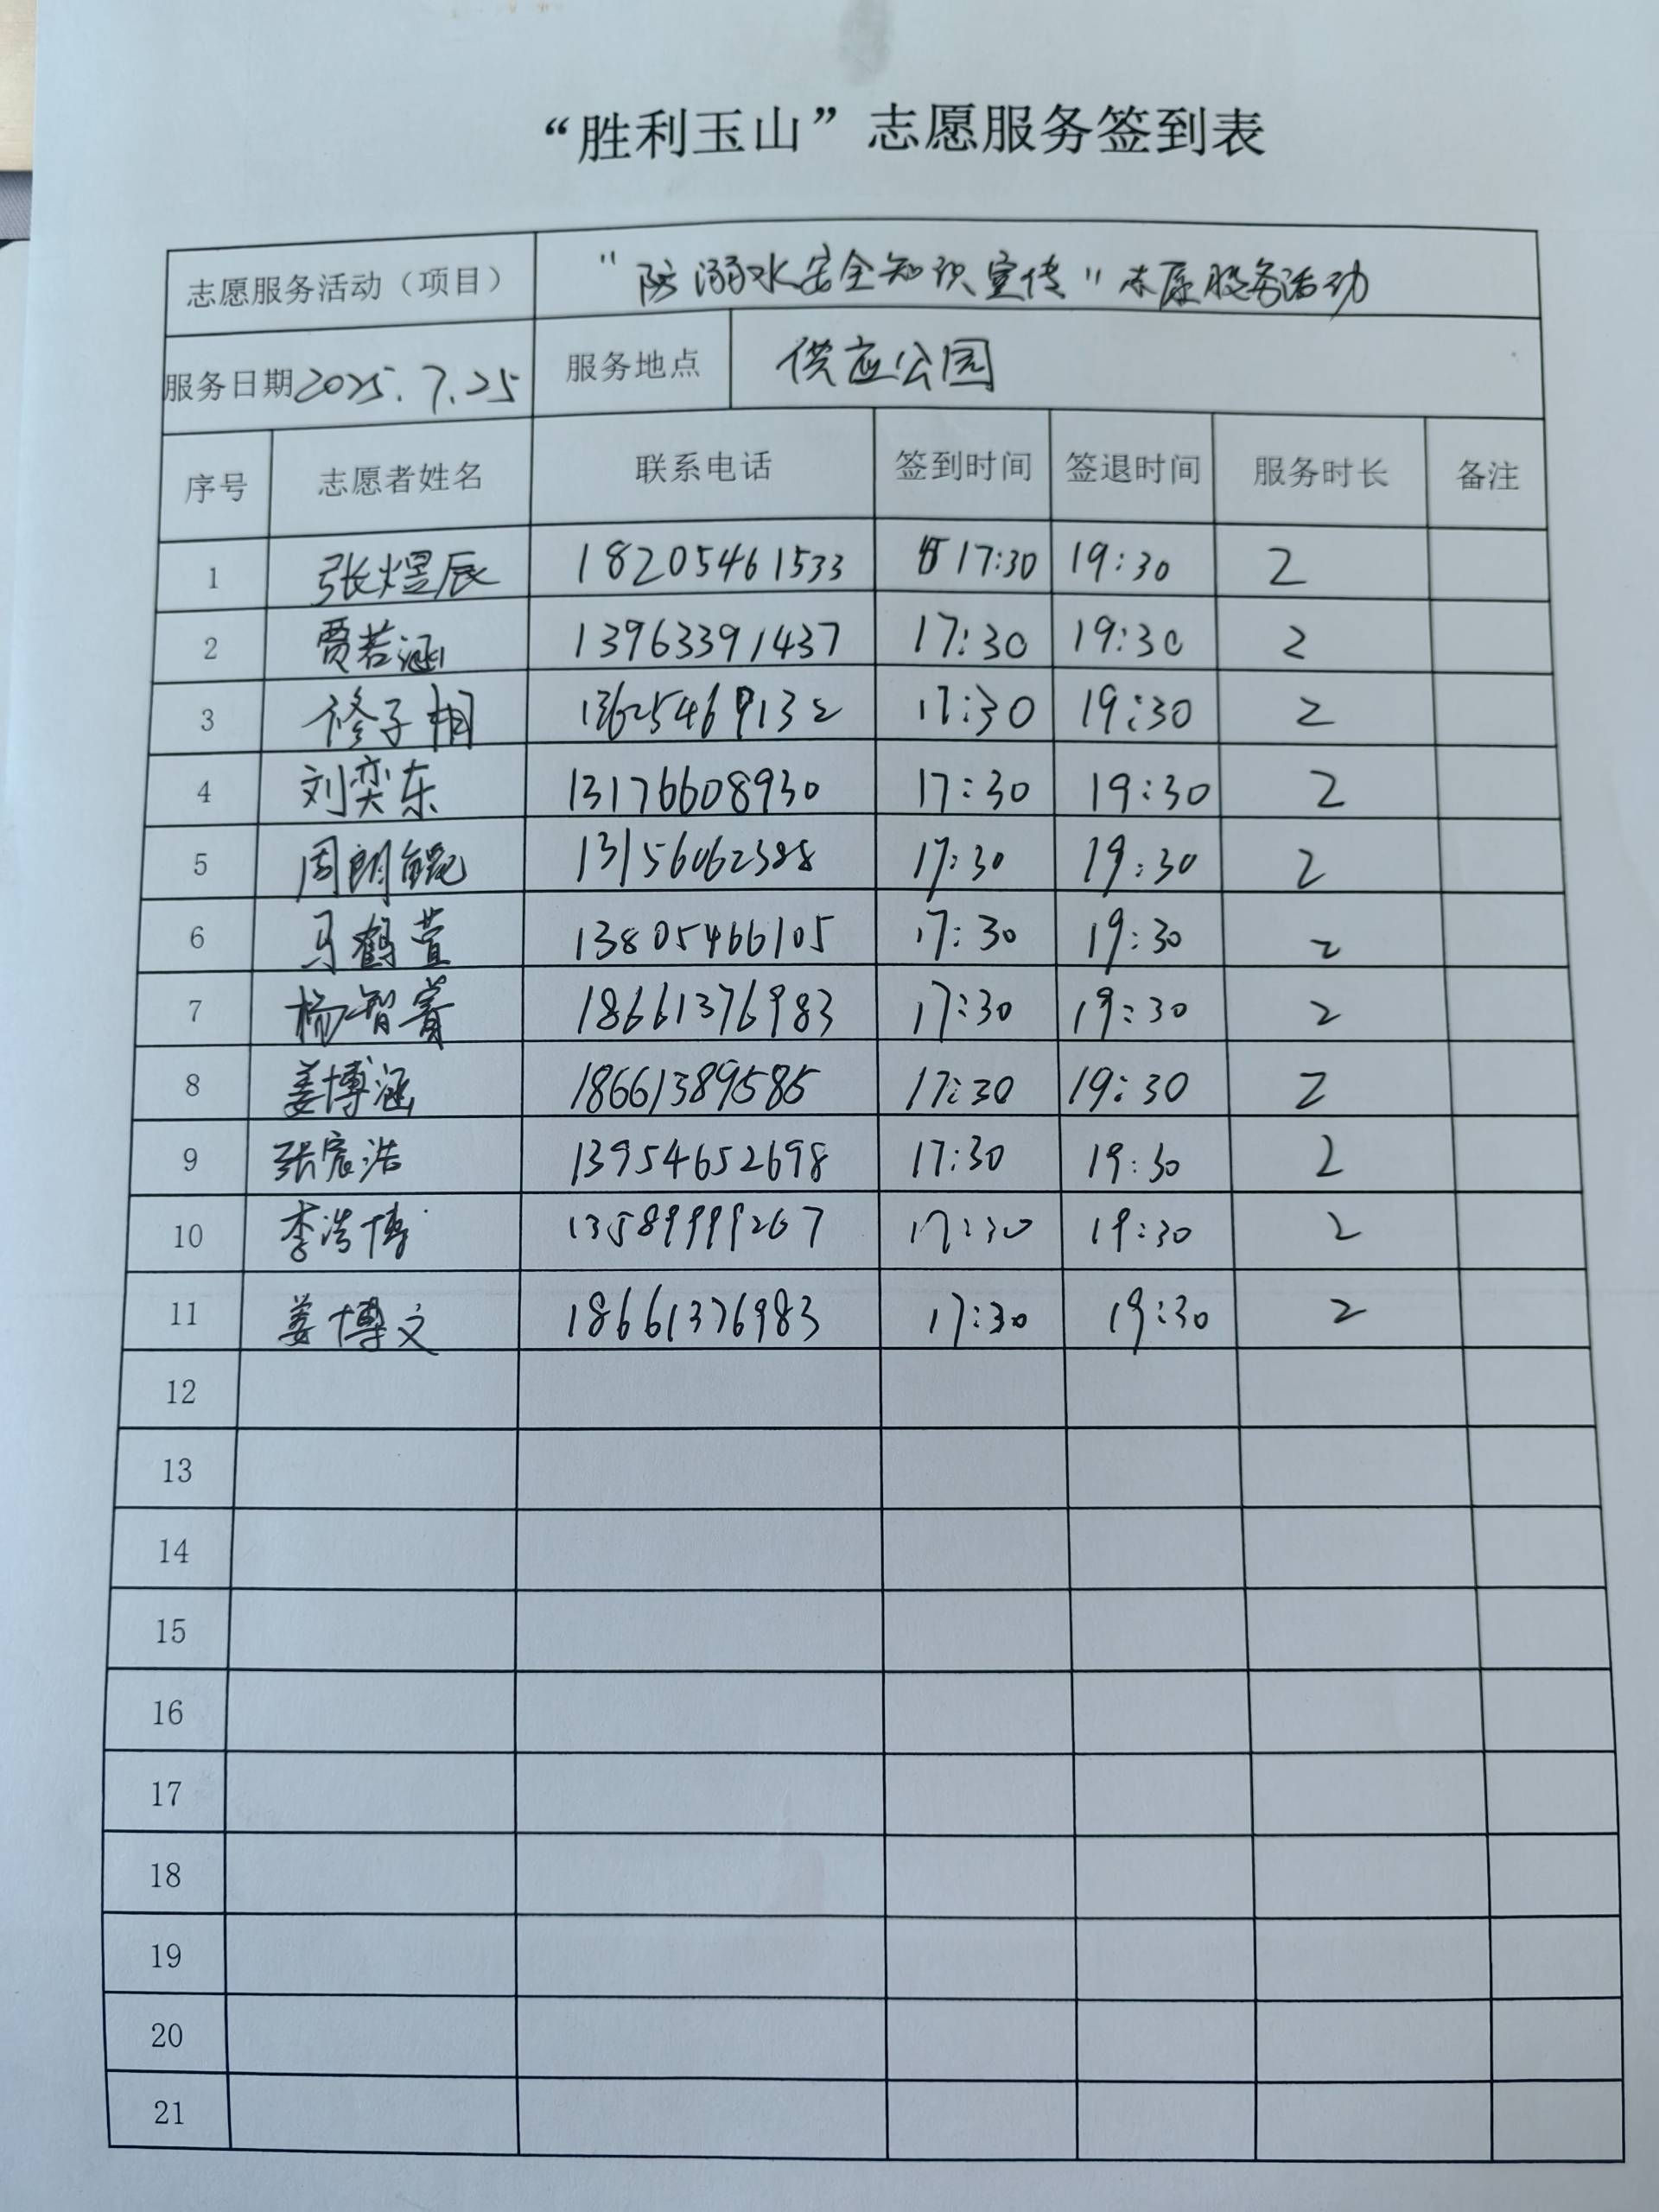 “胜利玉山”志愿服务签到表
志愿服务活动（项目） “防溺水安全知识宣传”志愿服务活动
服务日期 2025.7.25 服务地点 供应公园
序号 志愿者姓名 联系电话 签到时间 签退时间 服务时长 备注
1 张煜辰 18205461533 17:30 19:30 2
2 贾若涵 13963391437 17:30 19:30 2
3 修子桐 13625469132 17:30 19:30 2
4 刘奕东 13176608930 17:30 19:30 2
5 周朗鲲 13156062388 17:30 19:30 2
6 马鹤萱 13805466105 17:30 19:30 2
7 杨智菁 18661376983 17:30 19:30 2
8 姜博涵 18661389585 17:30 19:30 2
9 张宸浩 13954652698 17:30 19:30 2
10 李浩博 13589999267 17:30 19:30 2
11 姜博文 18661376983 17:30 19:30 2
12
13
14
15
16
17
18
19
20
21